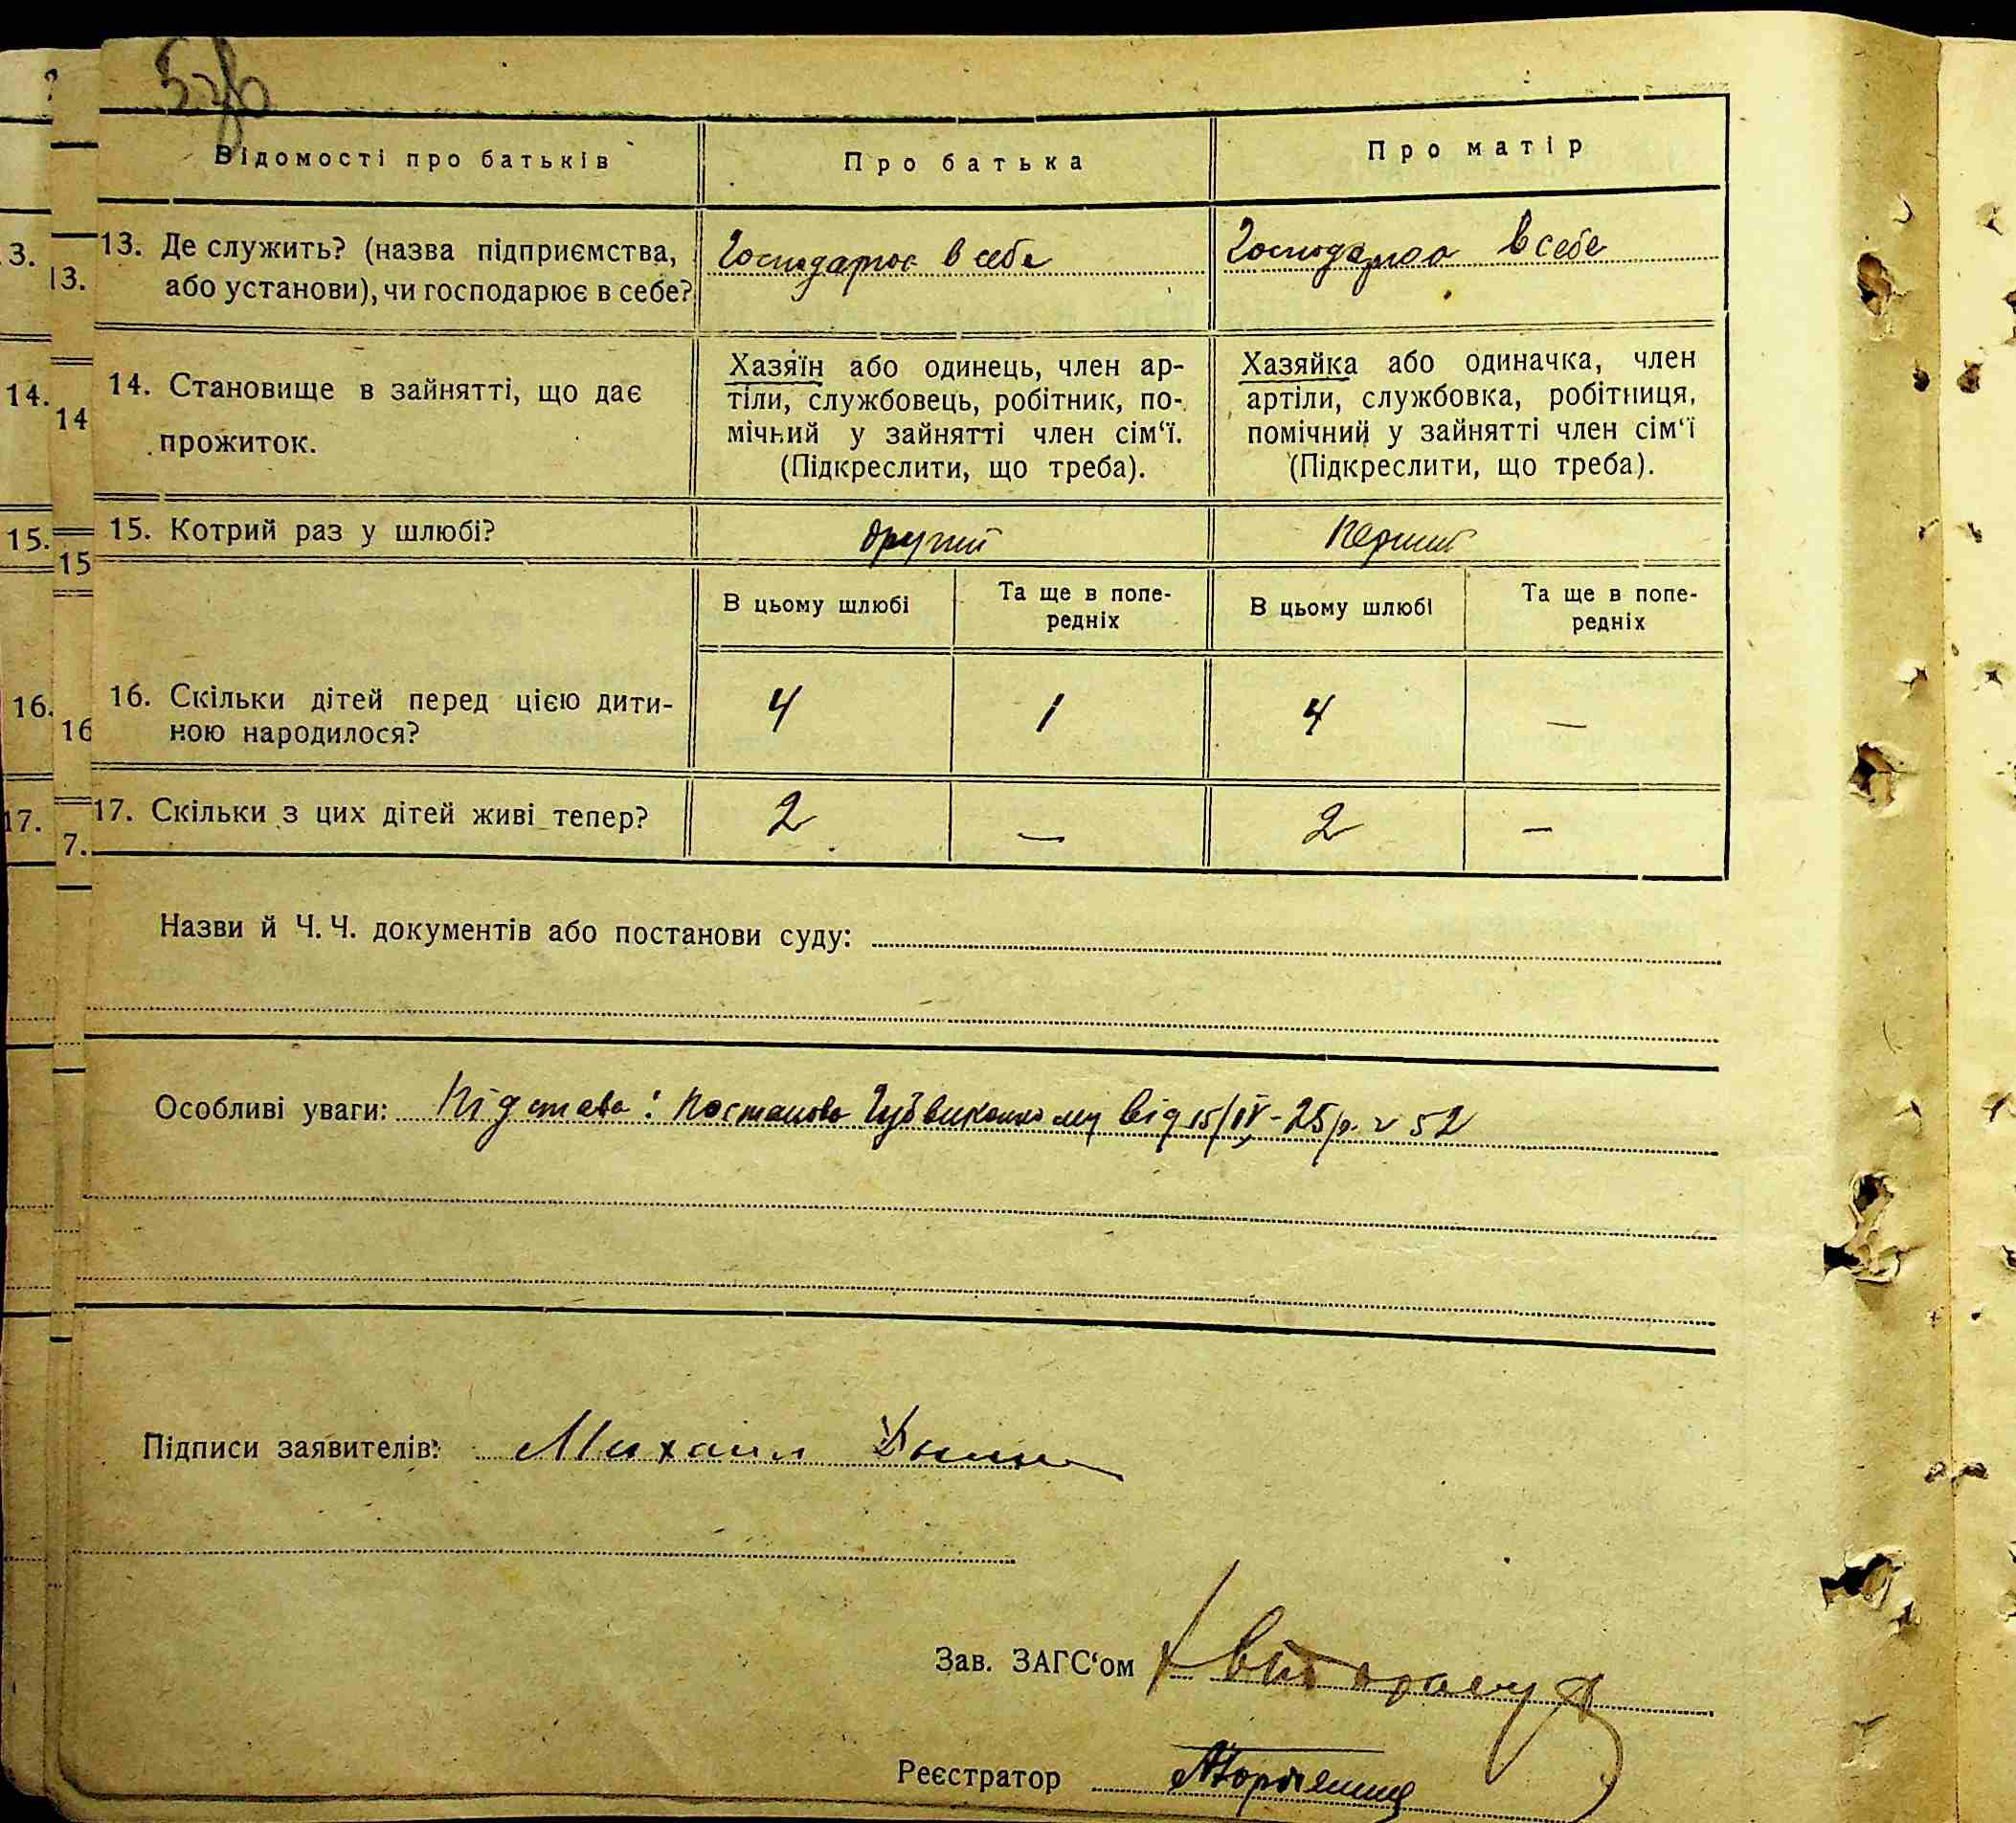 Відомості про батьків Про батька Про матір
3. 13. 13. Де служить? (назва підприємства, Господарює в себе Господарює в себе
або установи), чи господарює в себе?
14. 14 14. Становище в зайнятті, що дає прожиток.
Хазяїн або одинець, член ар-
тіли, службовець, робітник, по-
мічний у зайнятті член сім‘ї.
(Підкреслити, що треба).
Хазяйка або одиначка, член
артіли, службовка, робітниця,
помічний у зайнятті член сім‘ї
(Підкреслити, що треба).
15. 15 15. Котрий раз у шлюбі? другий перший
В цьому шлюбі Та ще в попе-
редніх В цьому шлюбі Та ще в попе-
редніх
16. 16 16. Скільки дітей перед цією дити-
ною народилося? 4 1 4 —
17. 7. 17. Скільки з цих дітей живі тепер? 2 — 2 —
Назви й Ч. Ч. документів або постанови суду:
Особливі уваги: Підстава: Постанова Губвиконкому від 15/IV-25 р. № 52
Підписи заявителів: Михаил
Зав. ЗАГС‘ом
Реєстратор